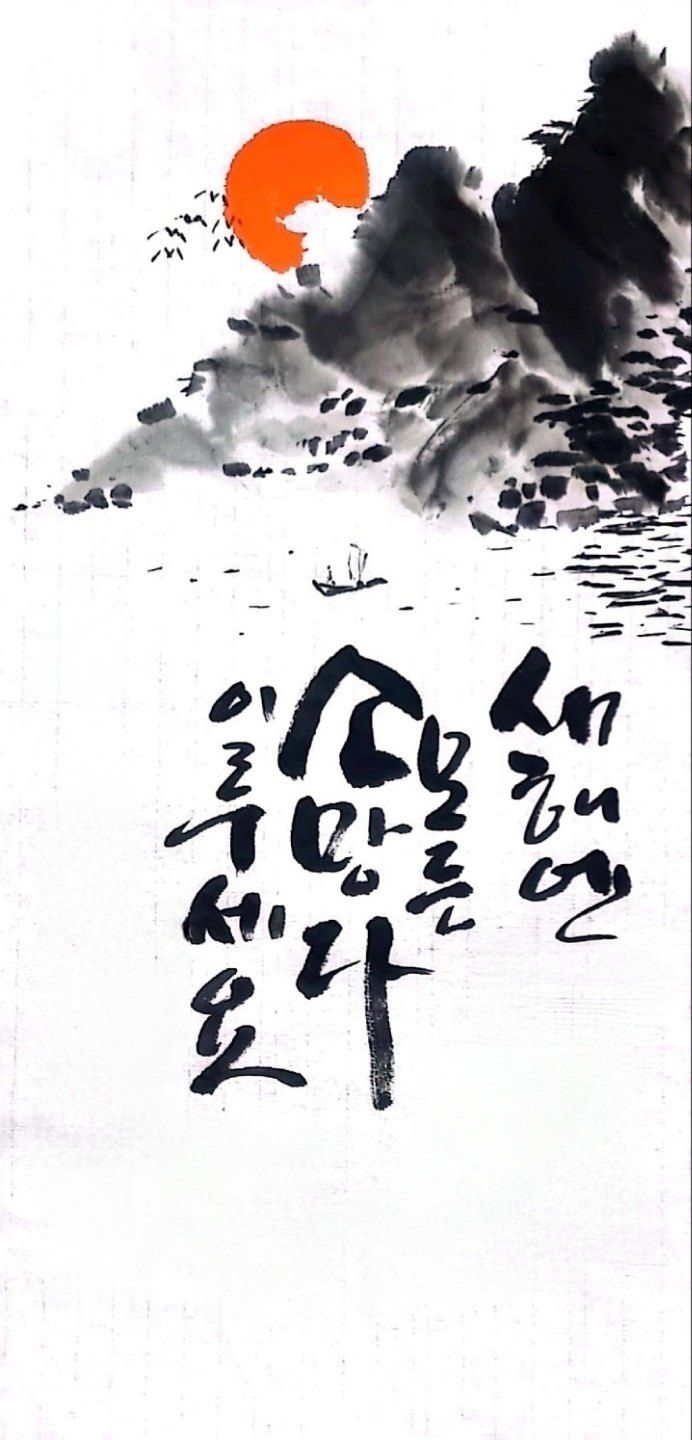 새해엔
모든
소망 다
이루세요